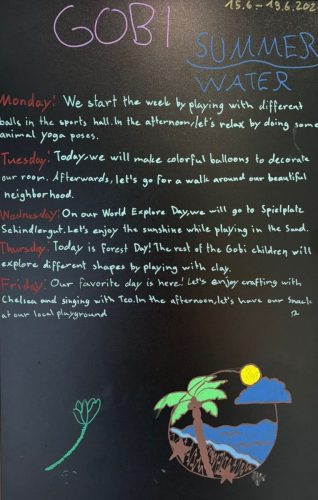 15.6 - 19.6.202
GOBI
SUMMER
WATER
Monday: We start the week by playing with different
balls in the sports hall. In the afternoon, let's relax by doing some
animal yoga poses.
Tuesday: Today, we will make colorful balloons to decorate
our room. Afterwards, let's go for a walk around our beautiful
neighborhood.
Wednesday: On our World Explore Day, we will go to Spielplatz
Schindlergut. Let's enjoy the sunshine while playing in the Sand.
Thursday: Today is Forest Day! The rest of the Gobi children will
explore different shapes by playing with clay.
Friday: Our favorite day is here! Let's enjoy crafting with
Chelsea and singing with Teo. In the afternoon, let's have our Snack
at our local playground